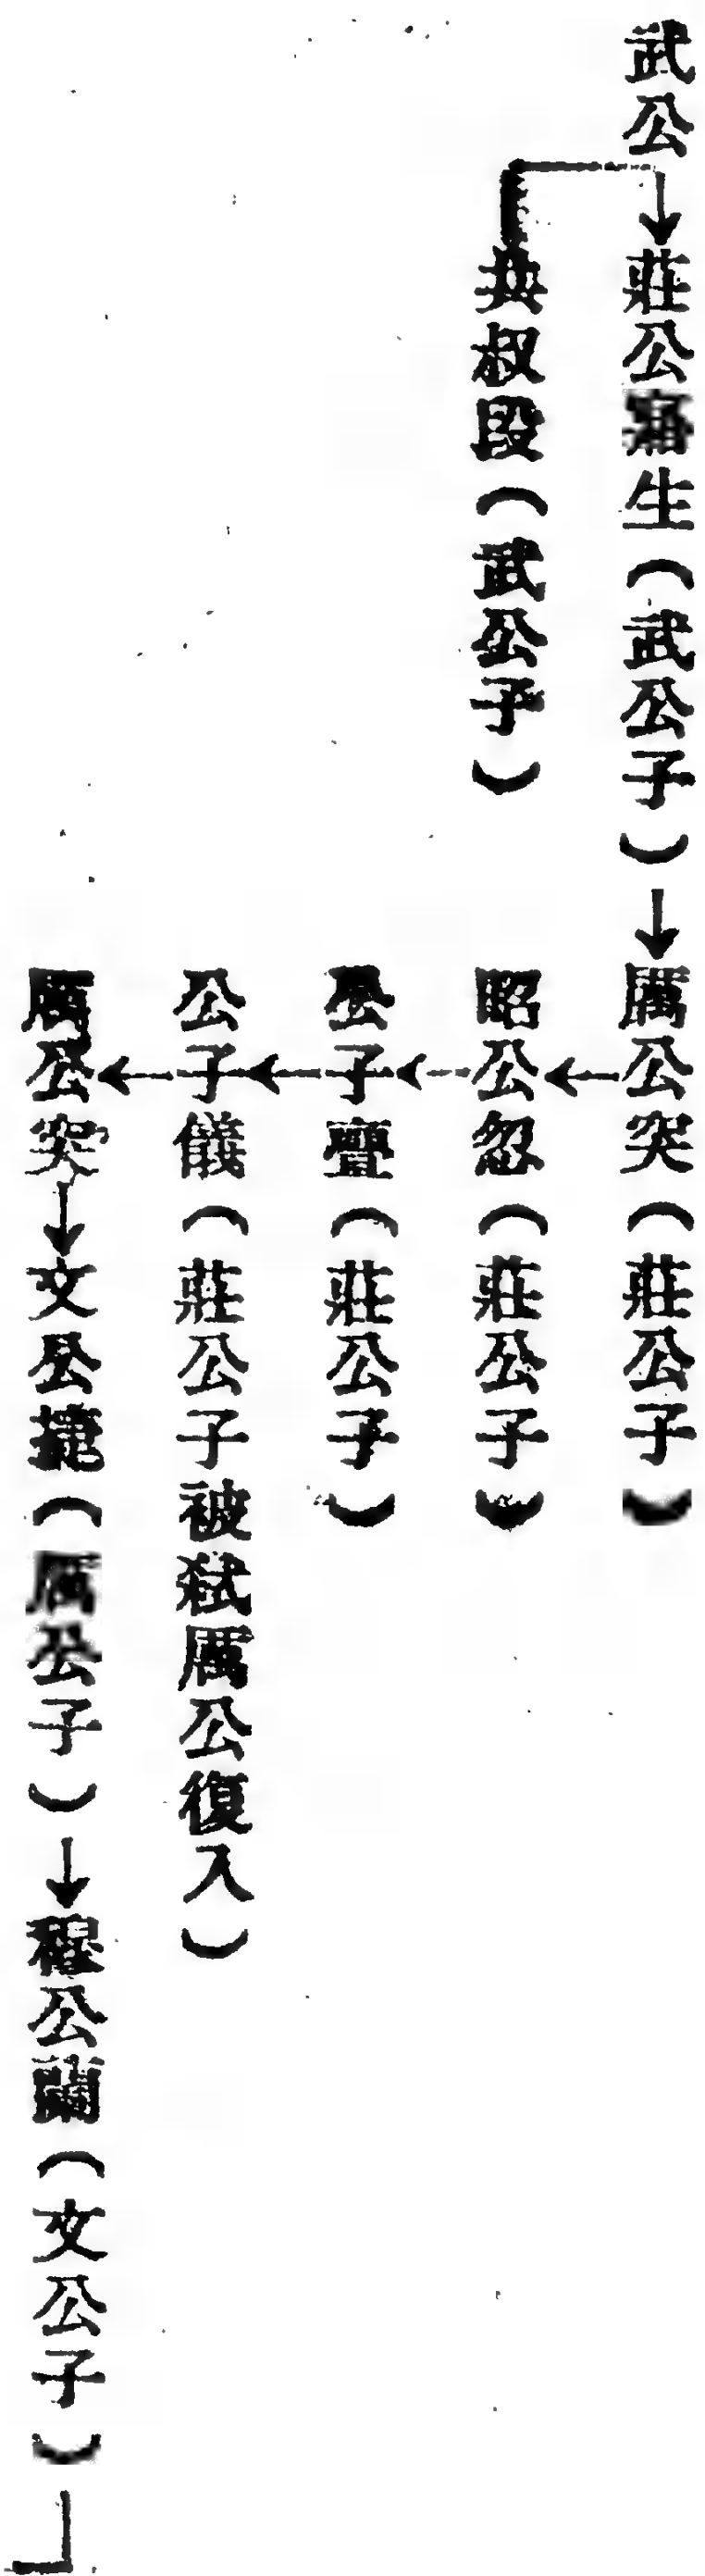 武公→莊公寤生（武公子）→厲公突（莊公子）
共叔段（武公子）
昭公忽（莊公子）
公子亹（莊公子）
公子儀（莊公子被弒厲公復入）
厲公突→文公捷（厲公子）→穆公蘭（文公子）